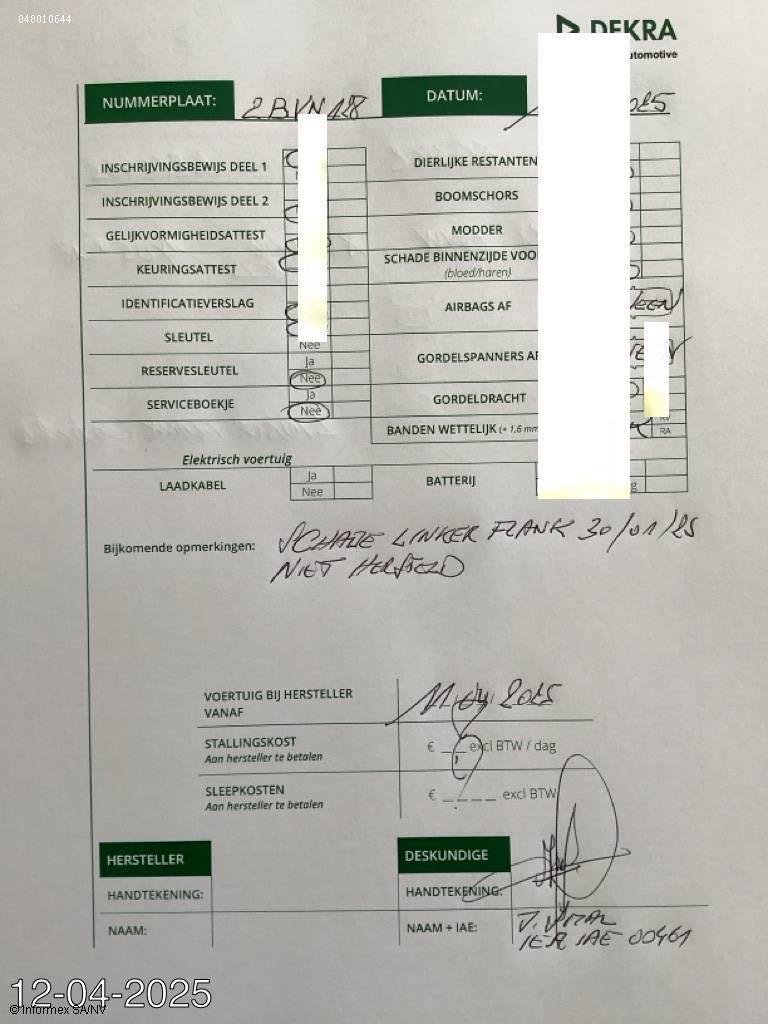 048010644
DEKRA
utomotive
NUMMERPLAAT: 2BVN128
DATUM: 025
INSCHRIJVINGSBEWIJS DEEL 1
INSCHRIJVINGSBEWIJS DEEL 2
GELIJKVORMIGHEIDSATTEST
KEURINGSATTEST
IDENTIFICATIEVERSLAG
SLEUTEL
Nee
RESERVESLEUTEL
Ja
Nee
SERVICEBOEKJE
Ja
Nee
DIERLIJKE RESTANTEN
BOOMSCHORS
MODDER
SCHADE BINNENZIJDE VOO
(bloed/haren)
AIRBAGS AF
GORDELSPANNERS AF
GORDELDRACHT
BANDEN WETTELIJK (+ 1,6 mm
RV
RA
Elektrisch voertuig
LAADKABEL
Ja
Nee
BATTERIJ
Bijkomende opmerkingen: SCHADE LINKER FLANK 30/01/25
NIET HERSTELD
VOERTUIG BIJ HERSTELLER
VANAF
11 04 2025
STALLINGSKOST
Aan hersteller te betalen
€ _ _ excl BTW / dag
SLEEPKOSTEN
Aan hersteller te betalen
€ _ _ _ _ excl BTW
HERSTELLER
HANDTEKENING:
NAAM:
DESKUNDIGE
HANDTEKENING:
NAAM + IAE:
IER IAE 00461
12-04-2025
© Informex SA/NV